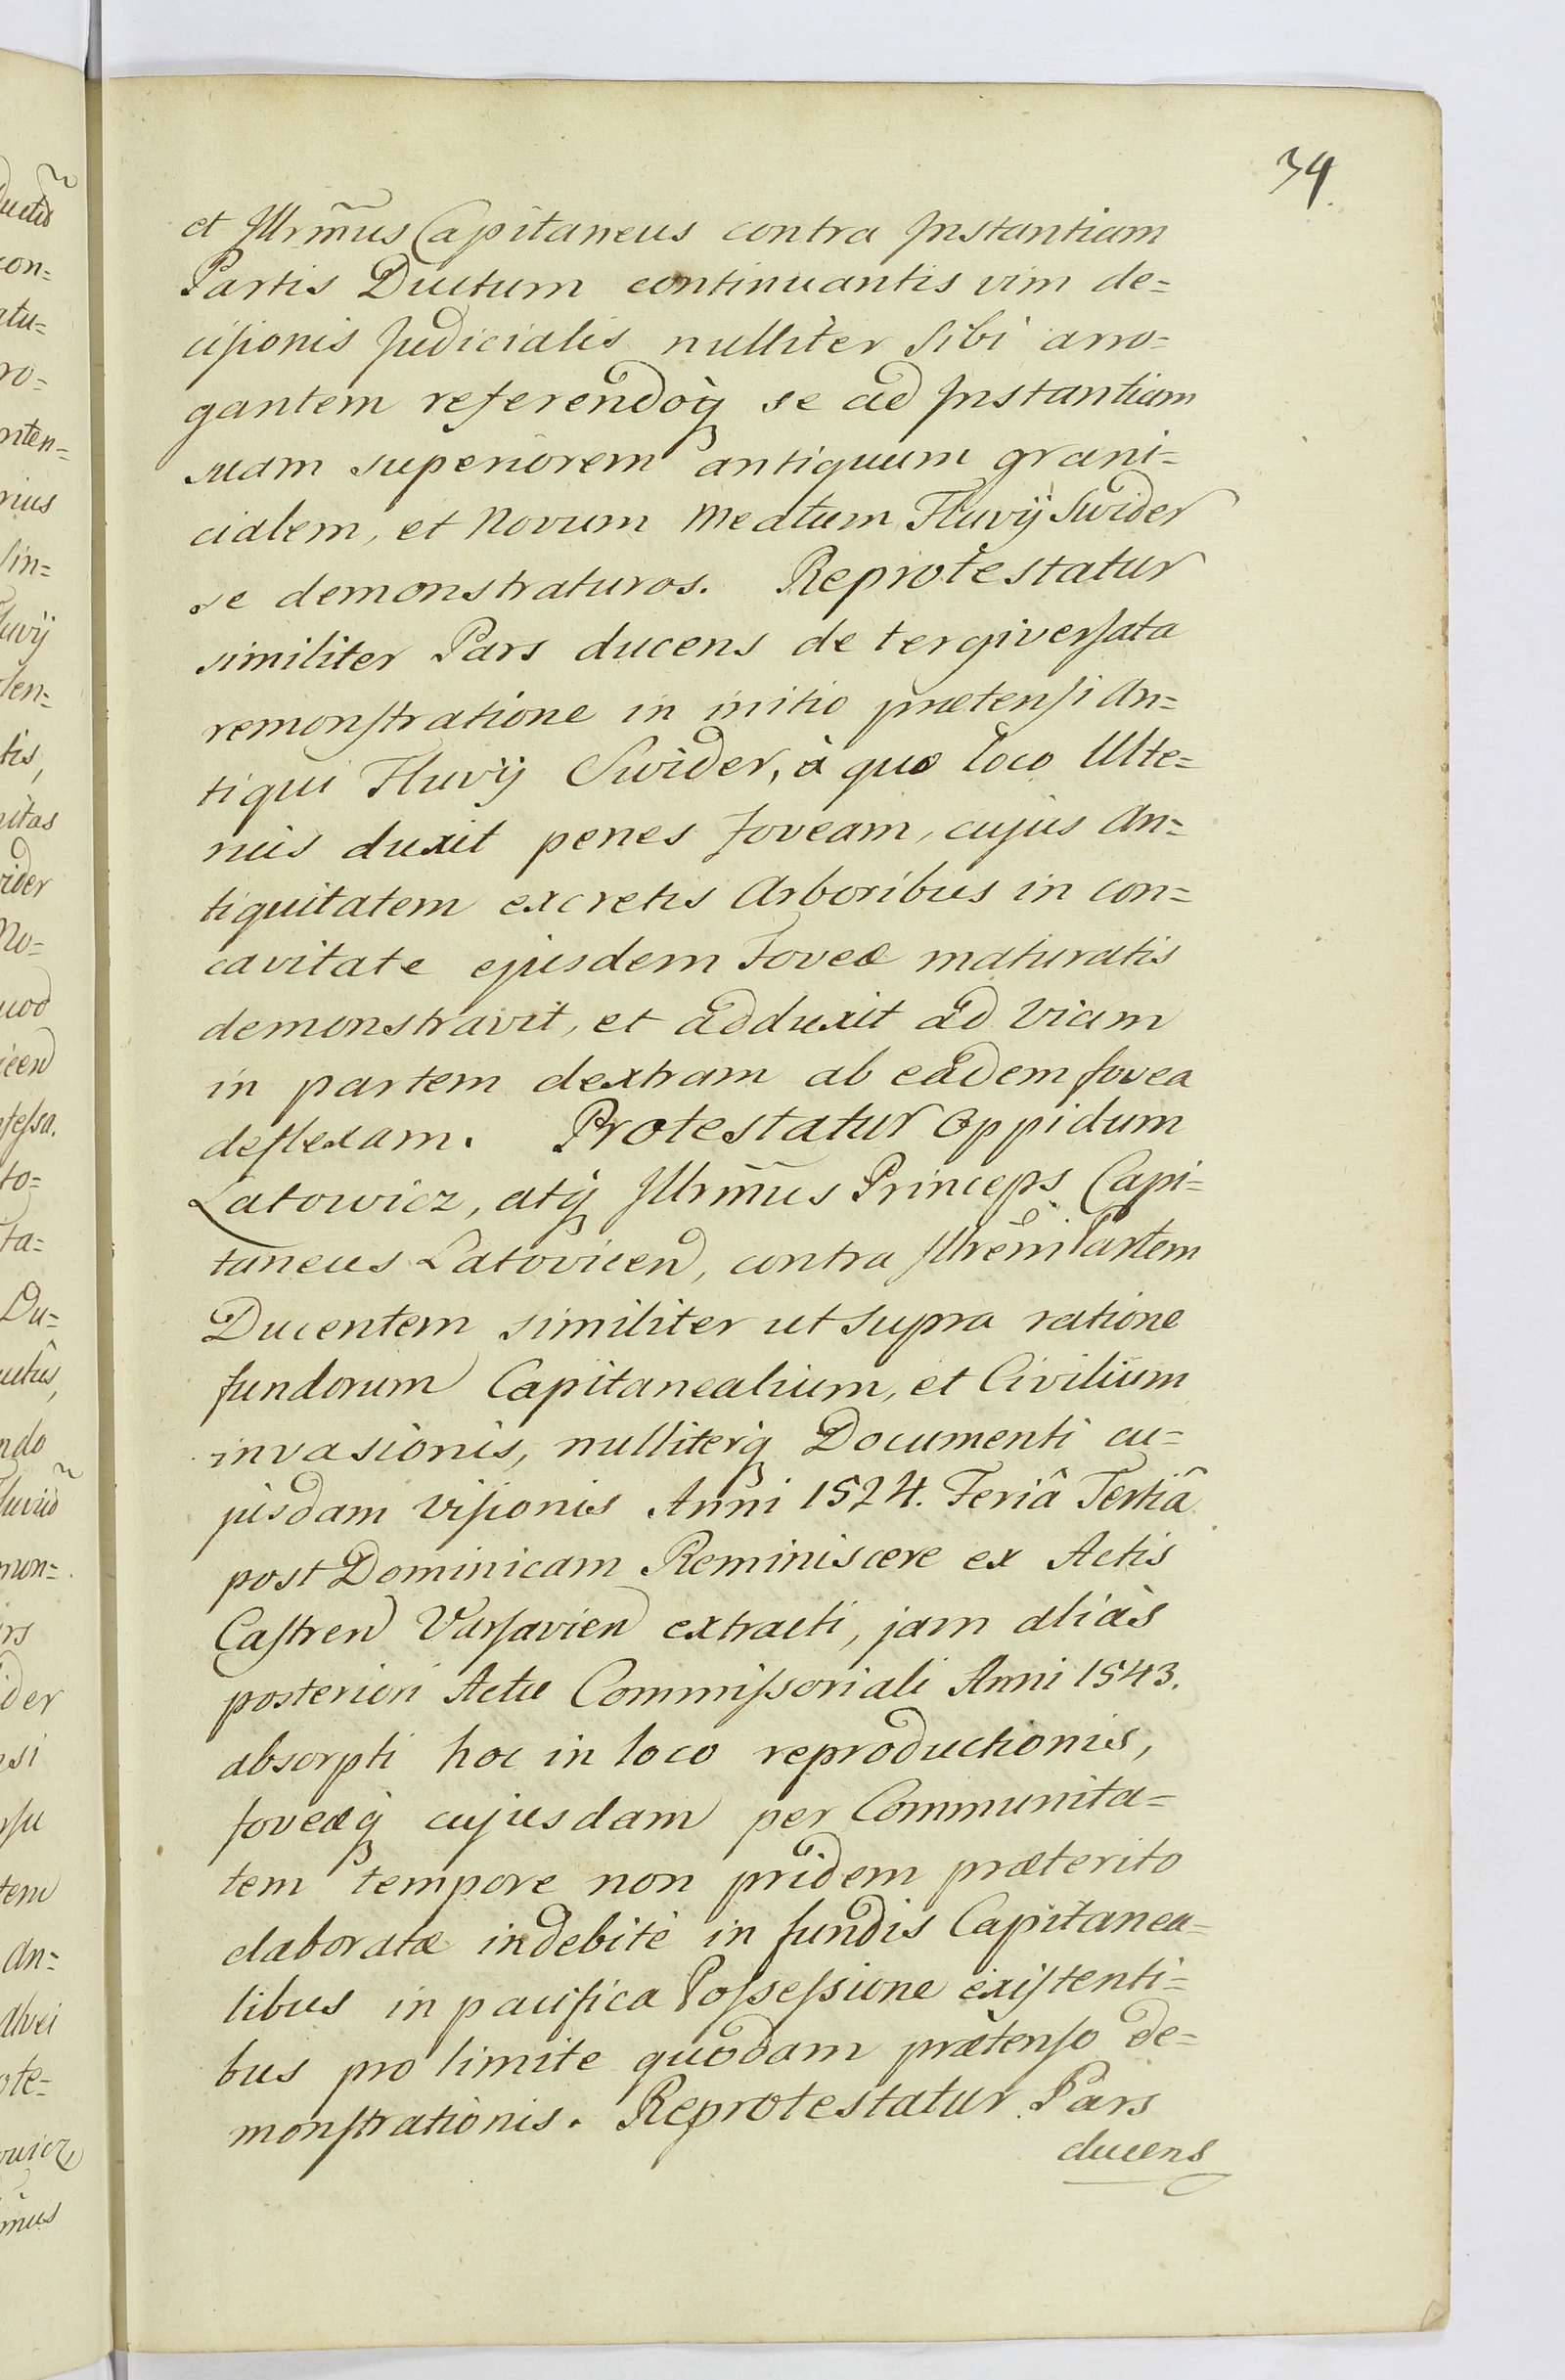 34.
et Jllrm̃us Capitaneus contra Jnstantiam
Partis Ductum continuantis vim de=
cisionis Judicialis nulliter sibi arro=
gantem referendoq̃ se ad Jnstantiam
suam superiorem antiquum grani=
cialem, et Novum Meatum Fluvÿ Swider
se demonstraturos. Reprotestatur
similiter Pars ducens de tergiversata
remonstratione in initio prætensi An=
tiqui Fluvÿ Swider, à quo loco Ulte=
rius duxit penes foveam, cujus An=
tiquitatem excretis Arboribus in con=
cavitate ejusdem Foveæ maturatis
demonstravit, et adduxit ad Viam
in partem dextram ab eâdem fovea
deflexam. Protestatur Oppidum
Latowicz, atq̃ Jllrm̃us Princeps Capi=
taneus Latovicen, contra Jllrem̃ Partem
Ducentem similiter ut supra ratione
fundorum Capitanealium, et Civilium
invasionis, nulliterq̃ Documenti cu=
jusdam Visionis Anni 1524. Feriâ Tertiâ
post Dominicam Reminiscere ex Actis
Castren Varsavien extracti, jam aliàs
posteriori Actu Commissoriali Anni 1543.
absorpti hoc in loco reproductionis,
foveæq̃ cujusdam per Communita=
tem tempore non pridem præterito
elaboratæ indebitè in fundis Capitanea=
libus in pacifica Possessione existenti=
bus pro limite quodam prætenso de=
monstrationis. Reprotestatur Pars
ducens